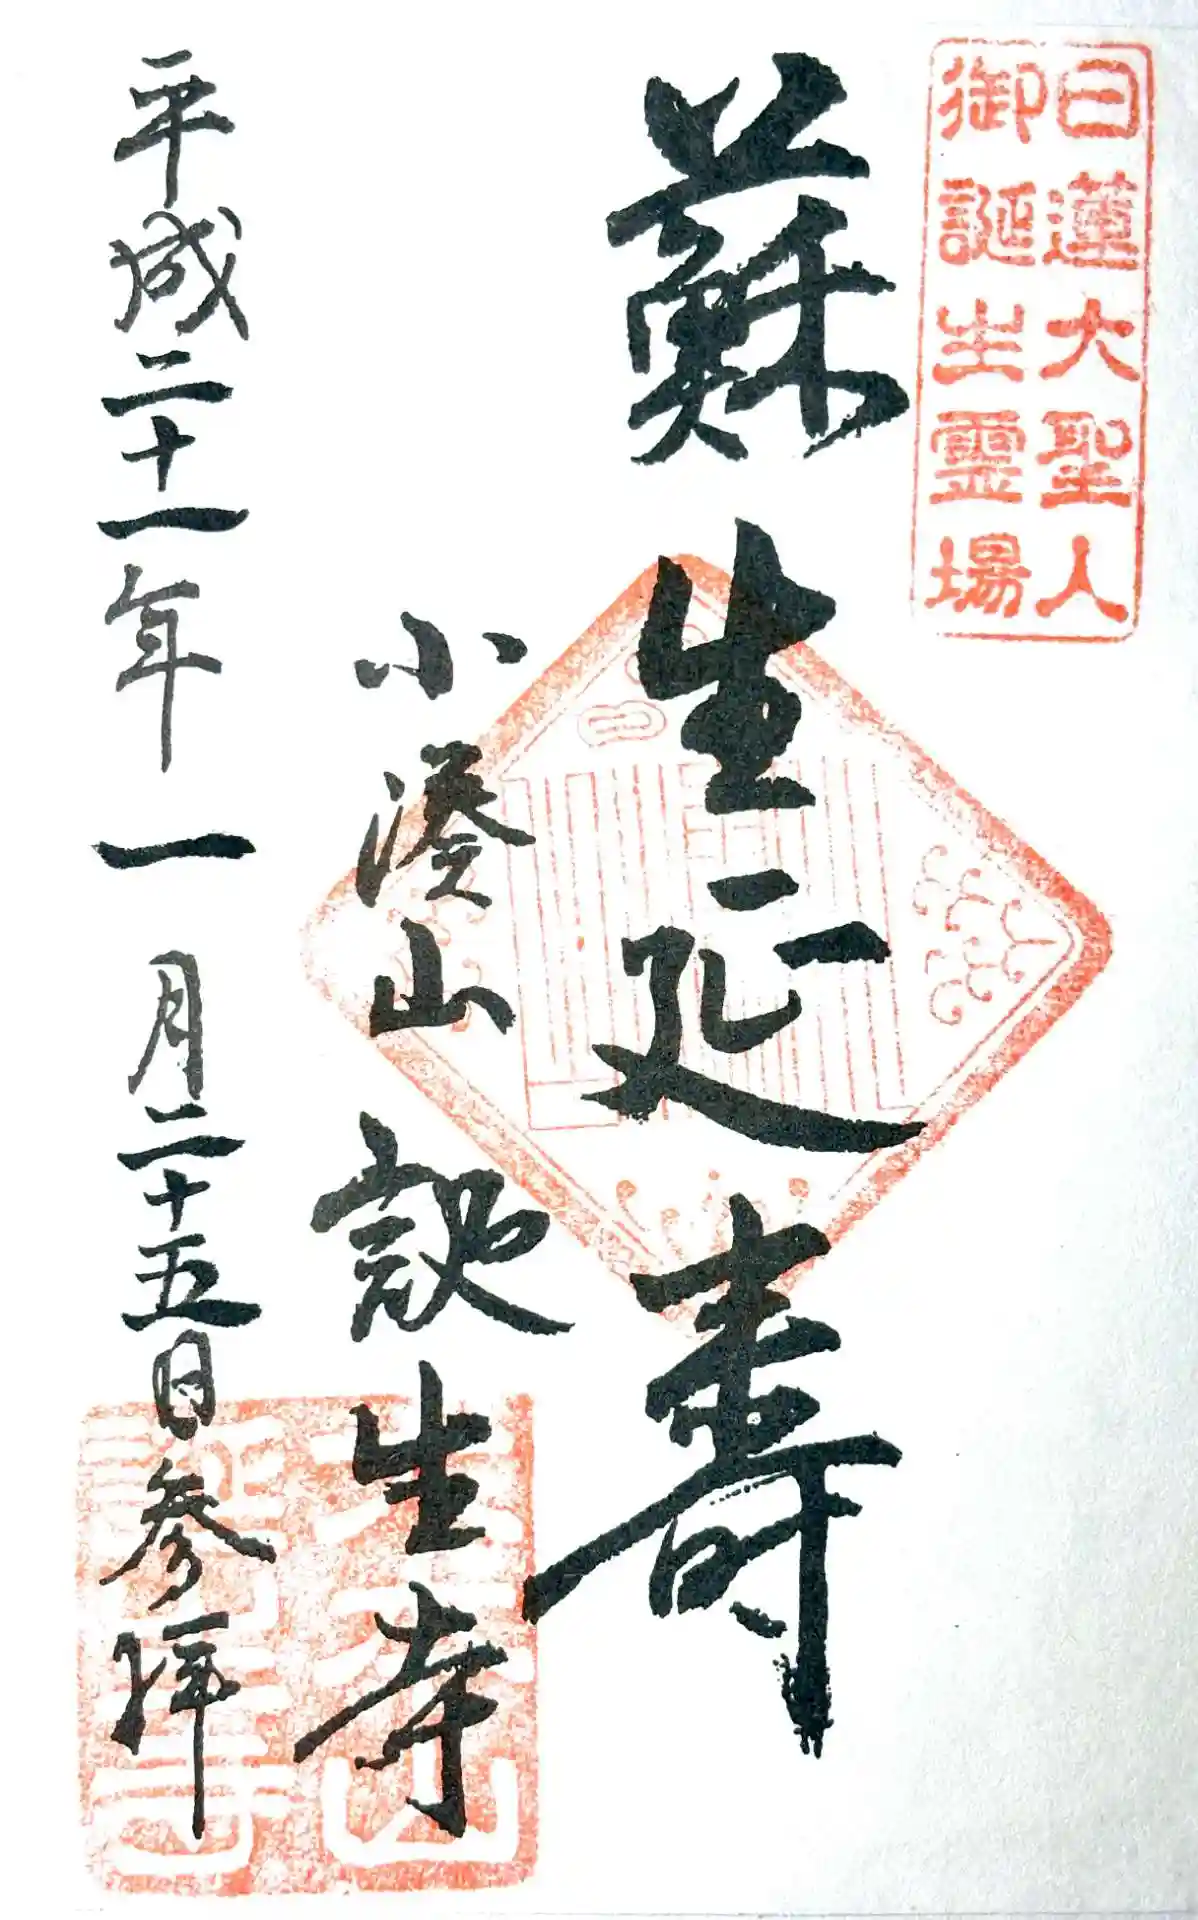 日蓮大聖人
御誕生霊場
蘇生延寿
小湊山 誕生寺
平成二十一年一月二十五日参拝